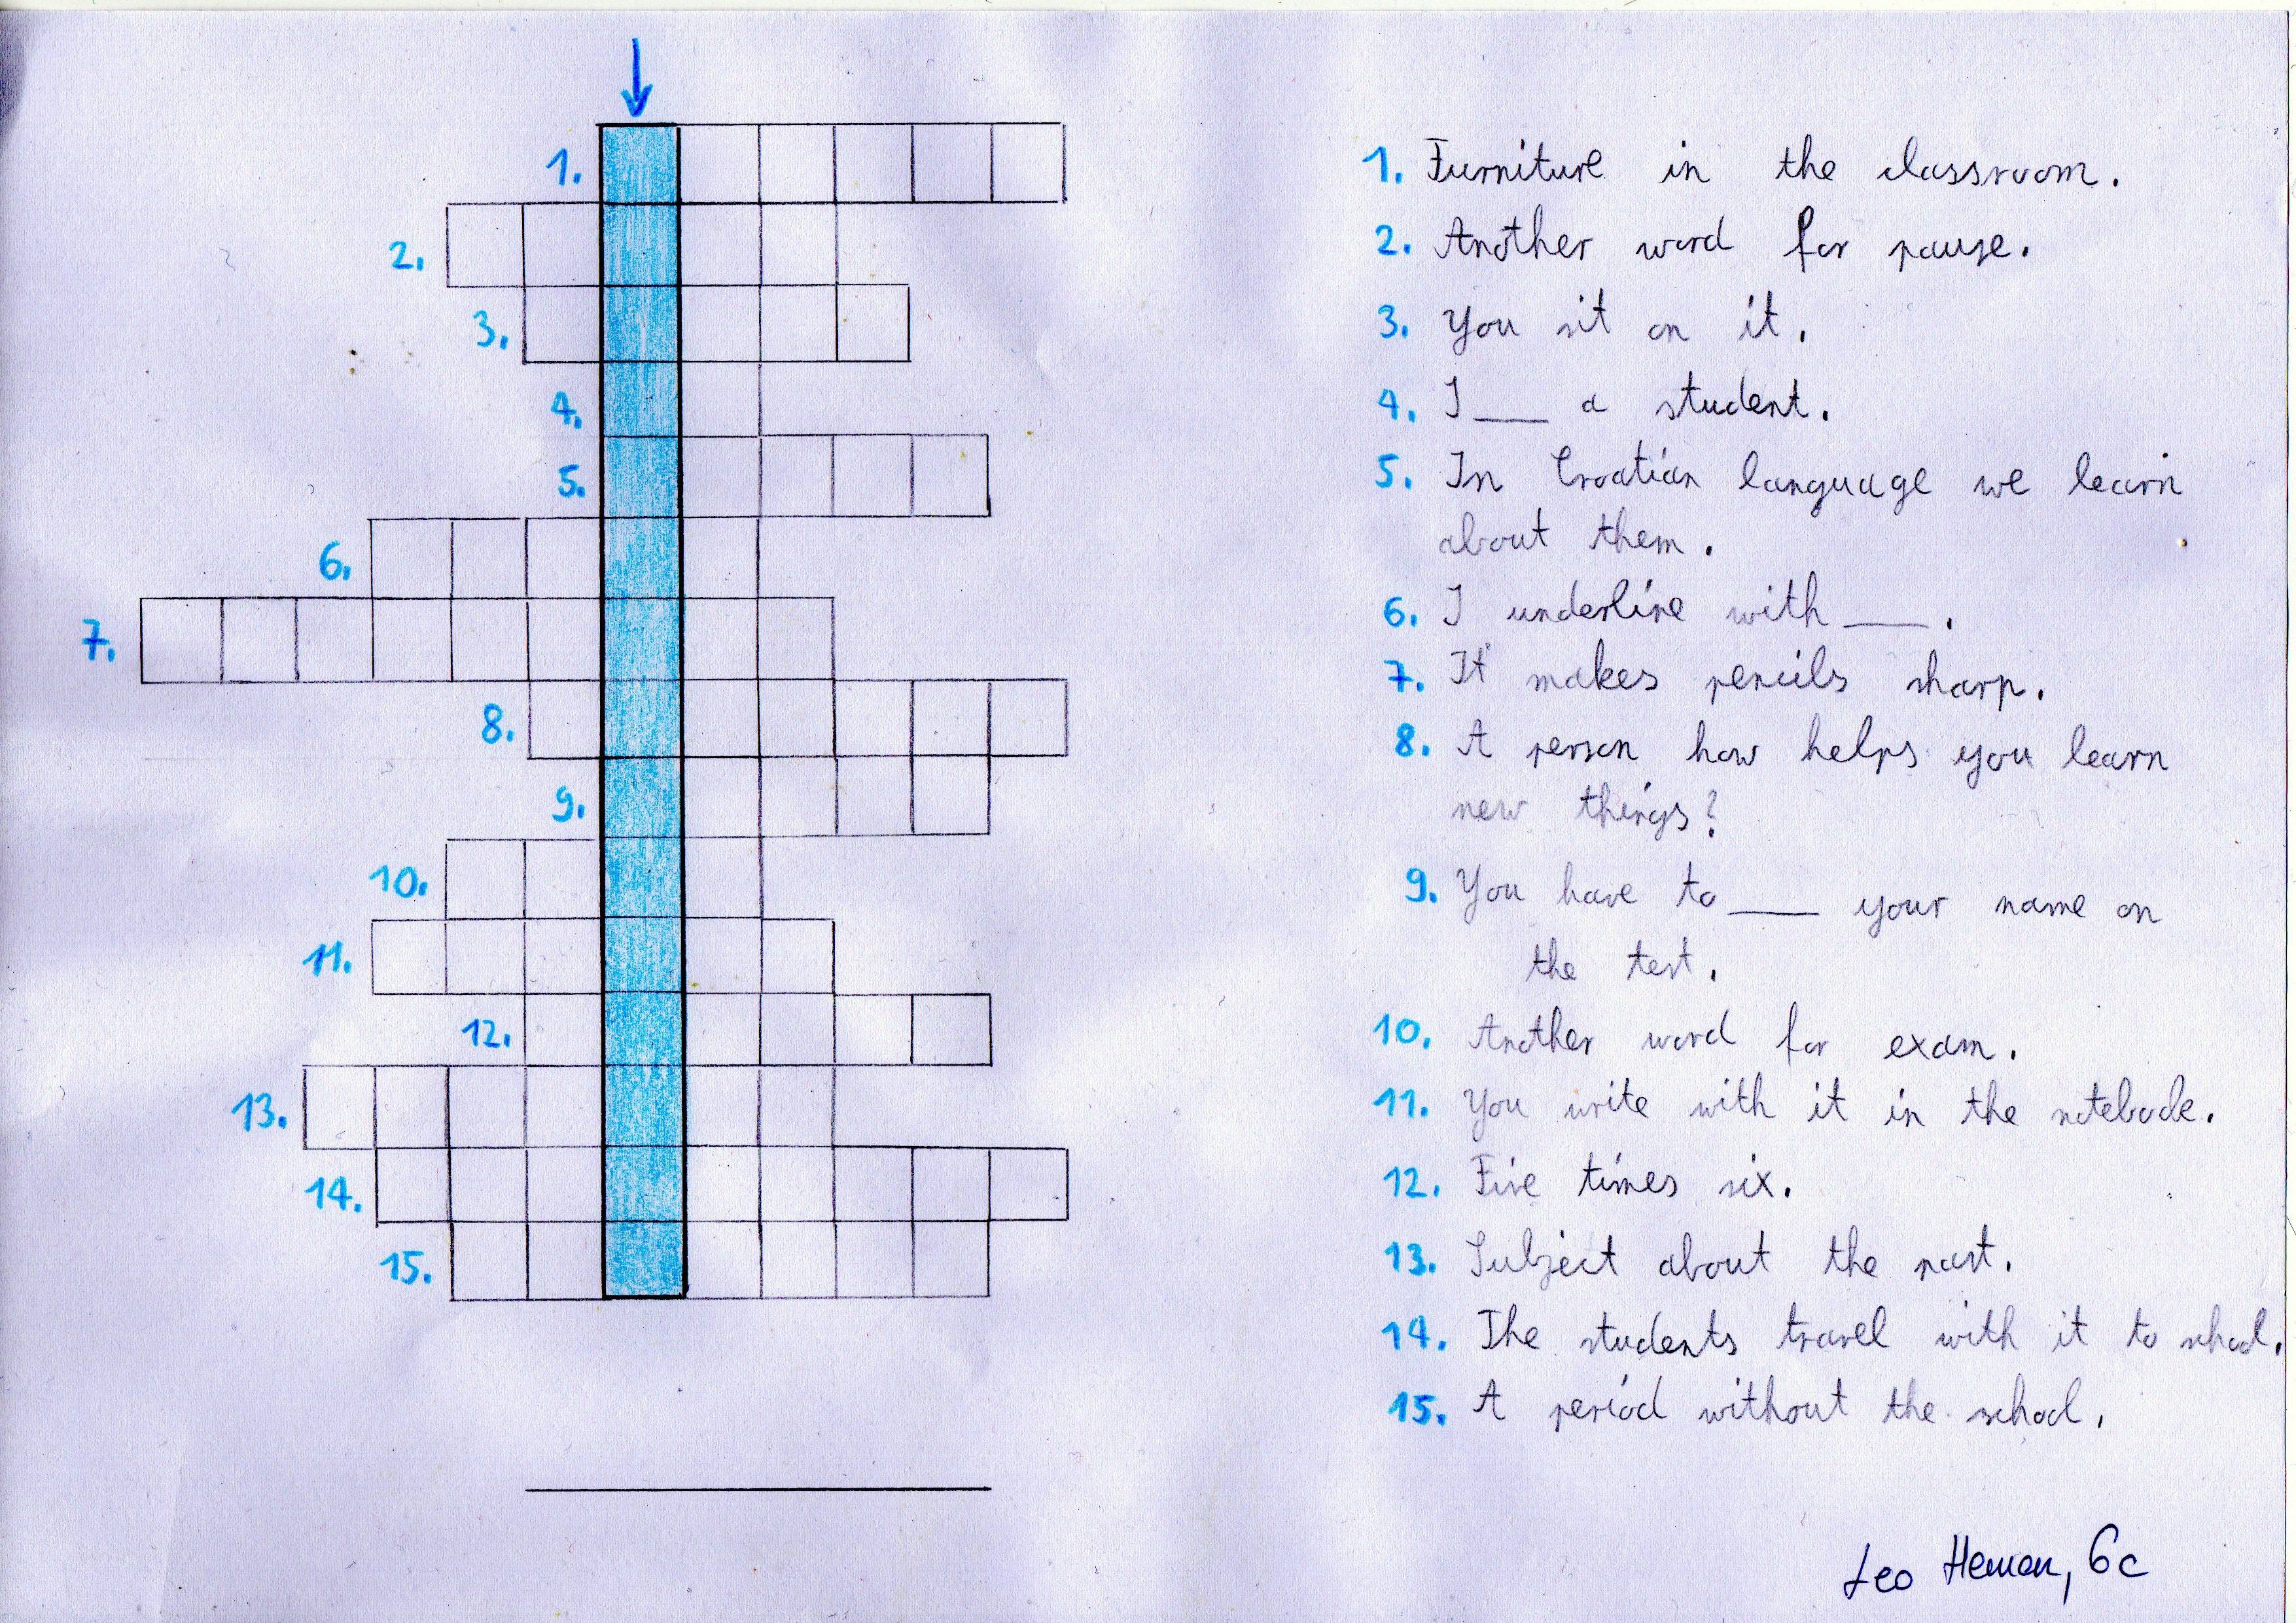 1.
2.
3.
4.
5.
6.
7.
8.
9.
10.
11.
12.
13.
14.
15.
1. Furniture in the classroom.
2. Another word for pause.
3. You sit on it.
4. I ___ a student.
5. In Croatian language we learn
about them.
6. I underline with ___.
7. It makes pencils sharp.
8. A person how helps you learn
new things?
9. You have to ___ your name on
the test.
10. Another word for exam.
11. You write with it in the notebook.
12. Five times six.
13. Subject about the past.
14. The students travel with it to school.
15. A period without the school.
Leo Heman, 6c